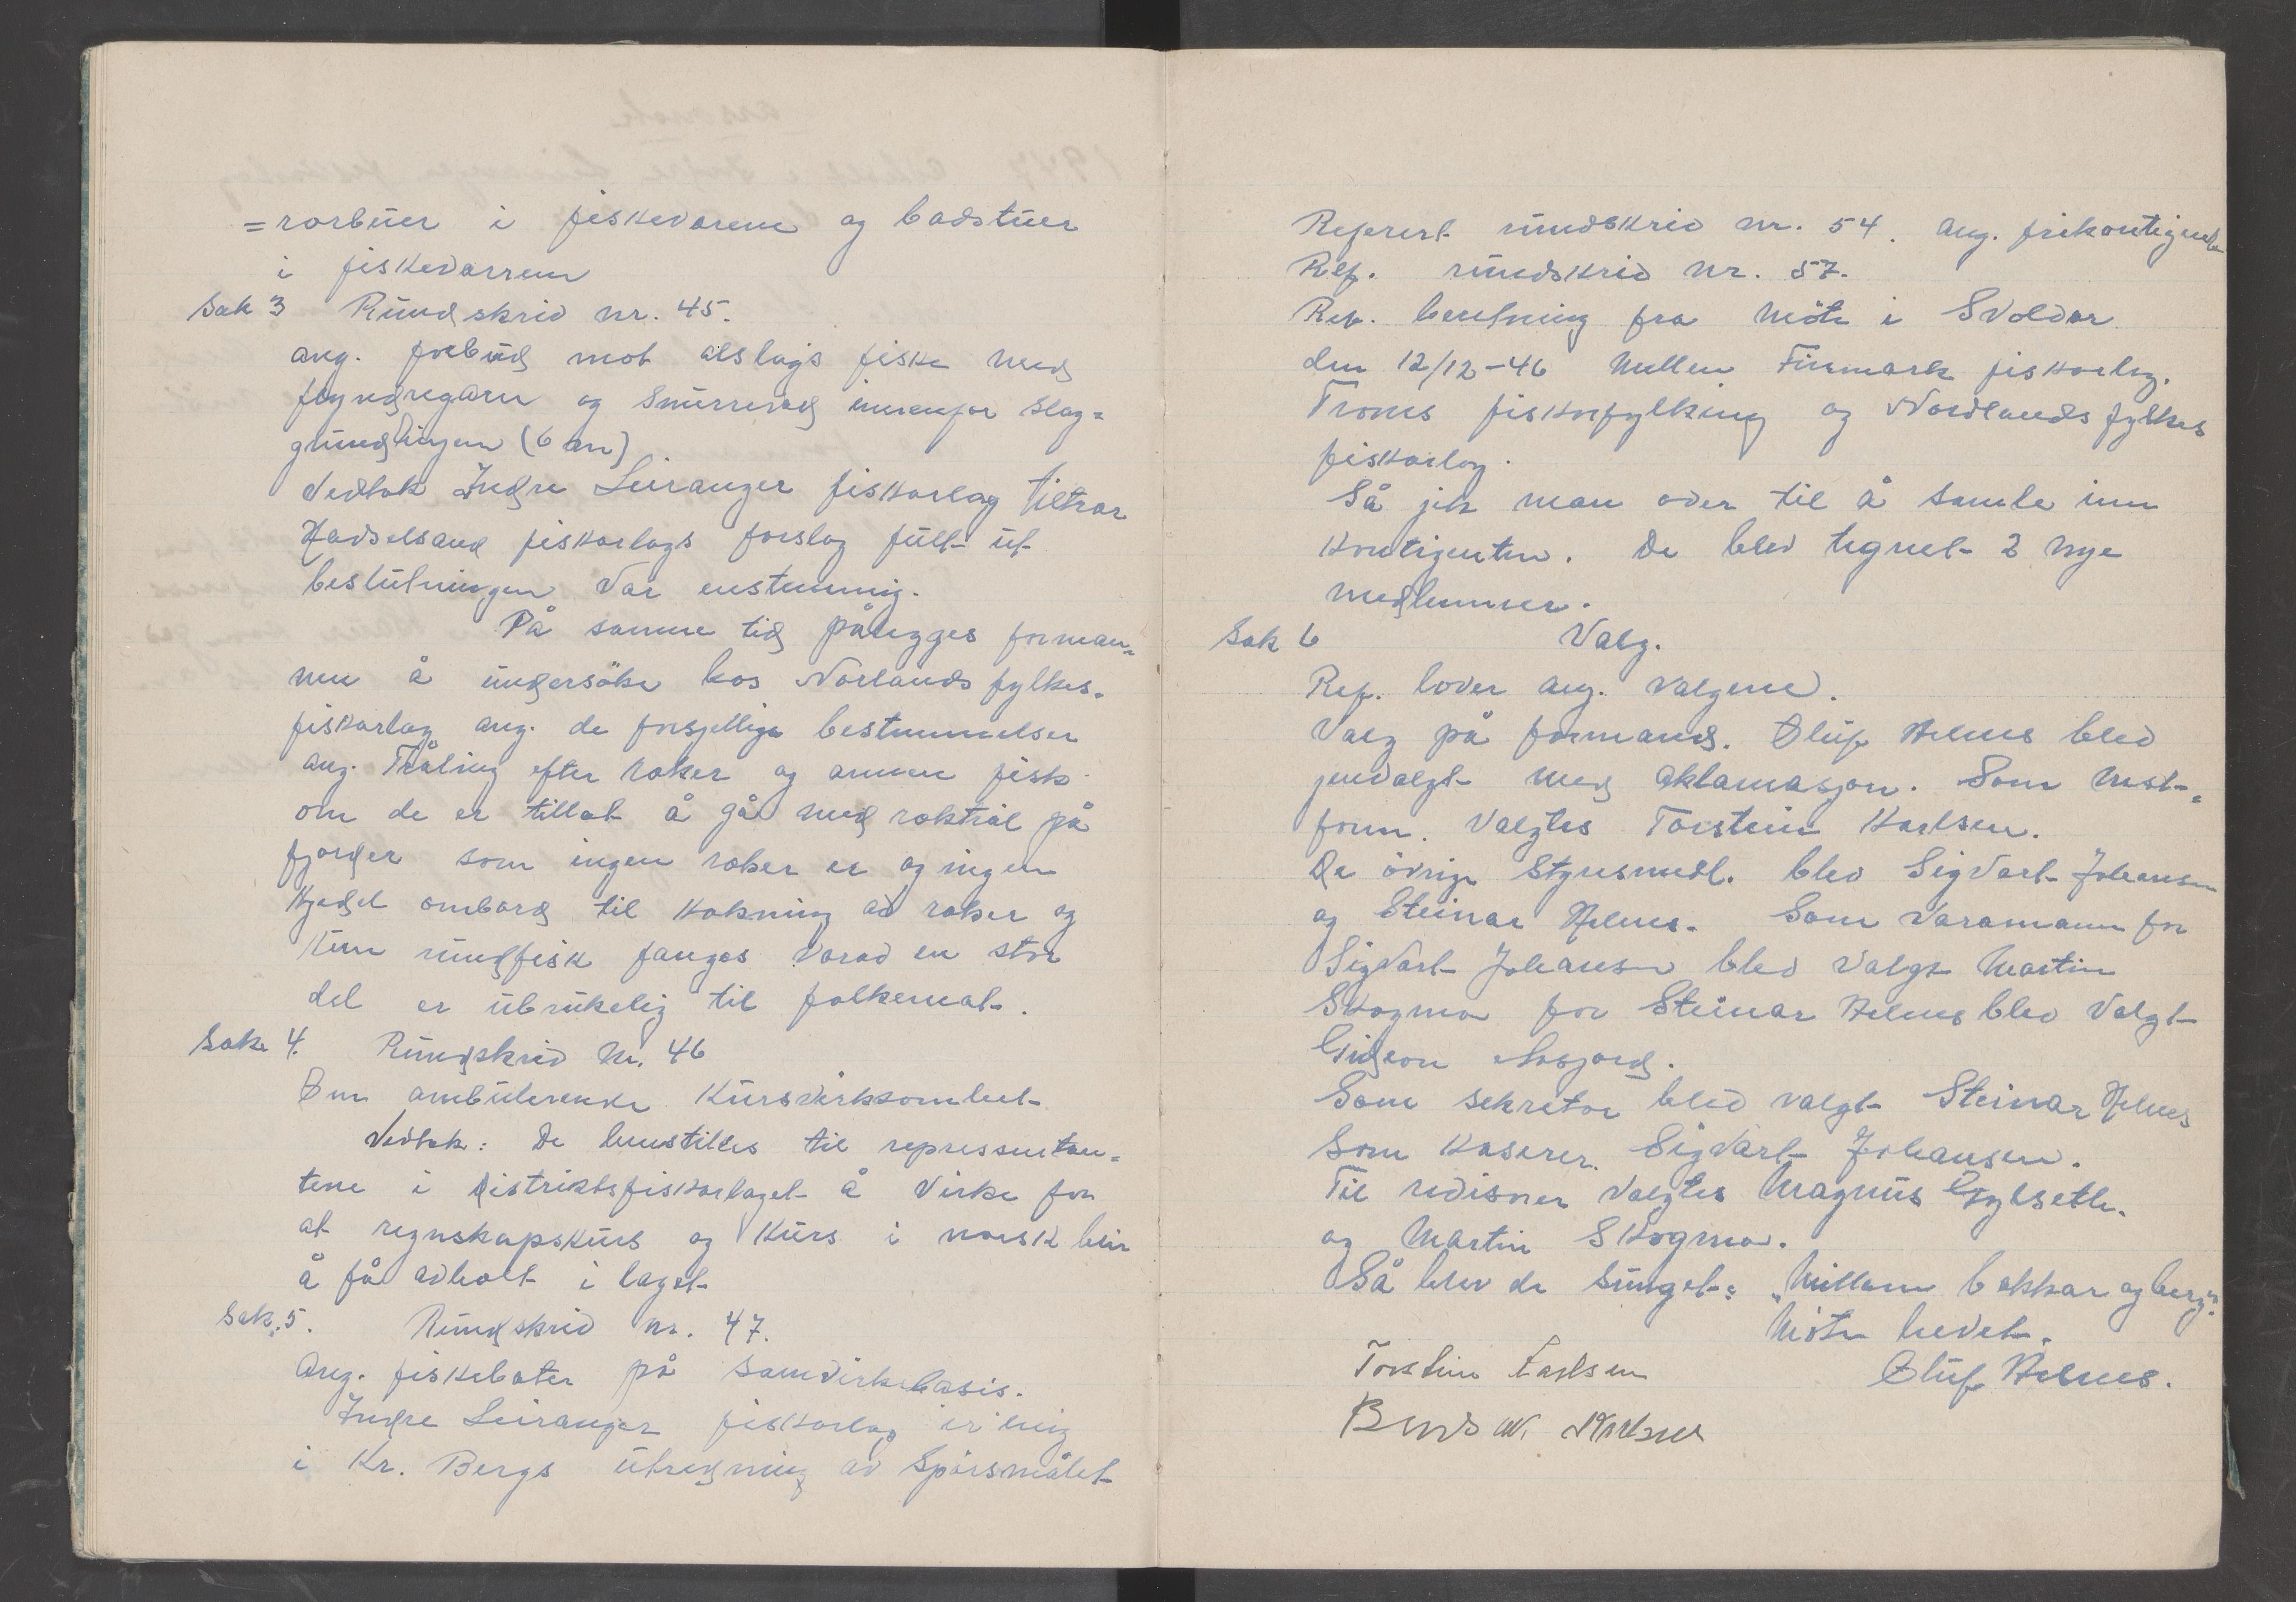 =rorbuer i fiskeværene og badstuer
i fiskeværrene
Sak 3 Rundskriv nr. 45.
ang. forbud mot alslags fiske med
flyndregarn og snurrevad innenfor Slag=
grundlinjen (6 an)
Vedtak Indre Leiranger fiskarlag tiltrær
Hadselsand fiskarlags forslag fullt ut
beslutningen var enstemmig.
På samme tid pålegges forman=
nen å undersöke hos Norlands fylkes=
fiskarlag ang. de forsjellige bestemmelser
ang. Tråling efterræker og annen fisk
om de er tillat å gå med ræktrål på
fjorder som ingen ræker er og ingen
Kjedel ombord til Kokning av ræker og
Kun rundfisk fanges Varav en stor
del er ubrukelig til folkemat.
Sak 4. Rundskriv Nr. 46
Om ambulerende Kursvirksomhet
Vedtak: De henstilles til repressentan=
tene i distriktsfiskarlaget å Virke for
at regnskapskurs og Kurs i norsk blir
å få avholt i laget
Sak. 5. Rundskriv nr. 47.
Ang. fiskebåter på Samvirkebasis.
Indre Leiranger fiskarlag er enig
i Kr. Bergs utredning av Spörsmålet
Referert rundskriv nr. 54. ang. frikontigenter
Ref. rundskriv nr. 57.
Ref. beretning fra Möte i Svolvær
den 12/12-46 Mellem Finmark fiskarlag.
Troms fiskarfylking og Nordlands fylkes
fiskarlag.
Så jik man over til å samle inn
Kontigenten. De blev tegnet 2 nye
medlemmer.
Sak 6 Valg.
Ref. lover ang. valgene.
Valg på formand. Oluf Helnes blev
jenvalgt med aklamasjon. Som Nest=
form. Valgtes Torstein Karlsen.
De övrige Styresmedl. blev Sigvart Johansen
og Steinar Helnes. Som Varamann for
Sigvart Johansen blev Valgt Martin
Skogmo for Steinar Helnes blev Valgt
Gideon Aasjord.
Som sekretær blev valgt Steinar Helnes
Som Kaserer. Sigvart Johansen.
Til revisorer Valgtes Magnus Gylseth.
og Martin Skogmo.
Så blev de Sunget: „Millom bakkar og berg".
Möte hevet.
Torstein Karlsen Oluf Helnes.